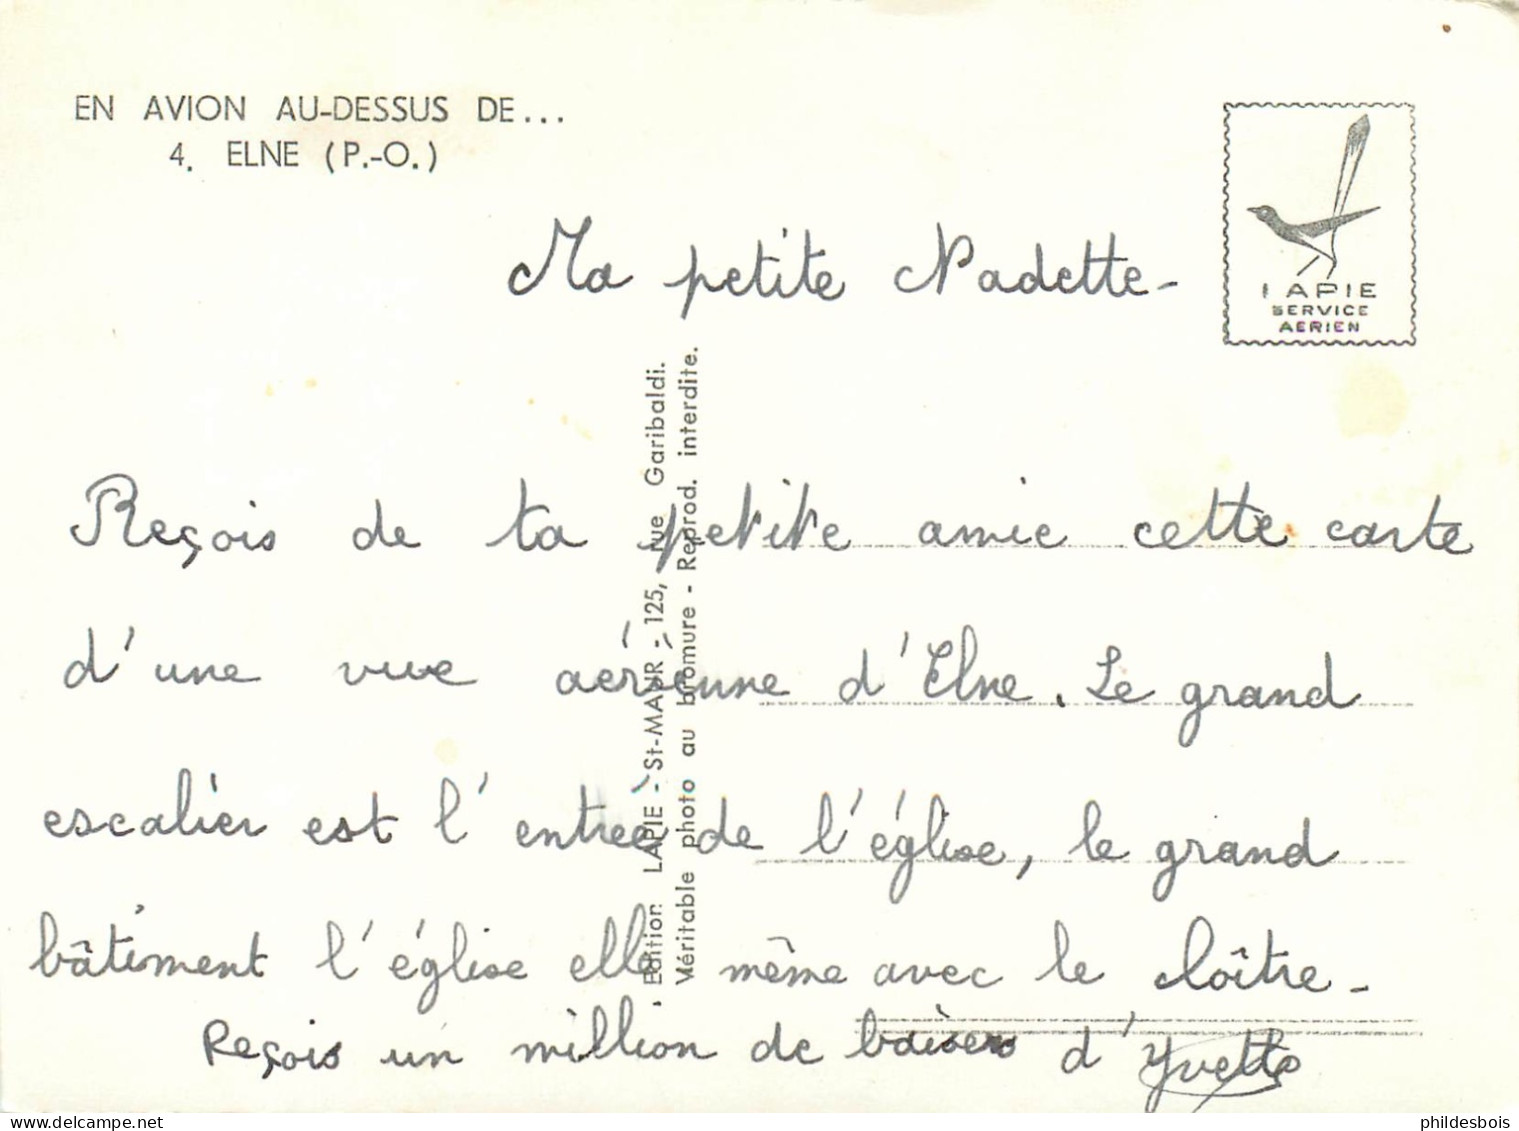 EN AVION AU-DESSUS DE...
4. ELNE (P.-O.)
LAPIE
SERVICE
AERIEN
Ma petite Nadette-
Reçois de ta petite amie cette carte
d'une vue aérienne d'Elne. Le grand
escalier est l'entrée de l'église, le grand
bâtiment l'église elle même avec le cloître-
Reçois un million de baisers d'Yvette
Edition LAPIE - St-MAUR - 125, rue Garibaldi.
Véritable photo au bromure - Reprod. interdite.
philDesbois